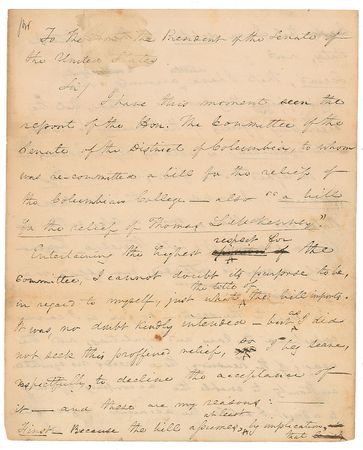 To the Hon: the President of the Senate of
the United States
Sir,
I have this moment seen the
report of the Hon: The Committee of the
Senate of the District of Columbia, to whom
was re-committed a bill for the relief of
the Columbian College — also "a bill
for the relief of Thomas L. McKenney."
Entertaining the highest respect for the
Committee, I cannot doubt its purpose to be,
in regard to myself, just what the title of the bill imports.
It was, no doubt kindly intended — but as I did
not seek this proffered relief, so I beg leave,
respectfully, to decline the acceptance of
it — and these are my reasons: —
First — Because the bill assumes, at least by implication,
that